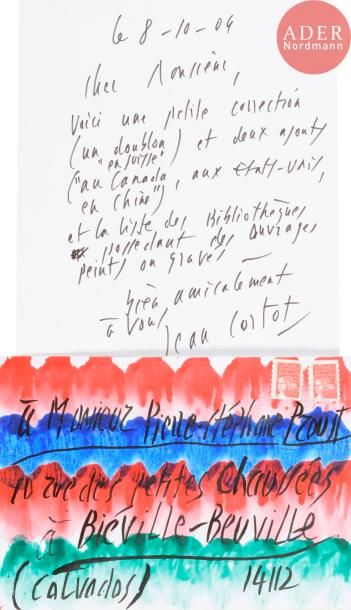 ADER
Nordmann
le 8-10-04
Cher Monsieur,
voici une petite collection
(un doublon) et deux ajouts
"en Suisse"
("au Canada, aux États-Unis,
en Chine")
et la liste des Bibliothèques
possédant des ouvrages
peints ou gravés —
bien amicalement
à vous
Jean Cortot
à Monsieur Pierre-Stéphane Proust
10 rue des petites Chaussées
à Biéville-Beuville
(Calvados) 14112